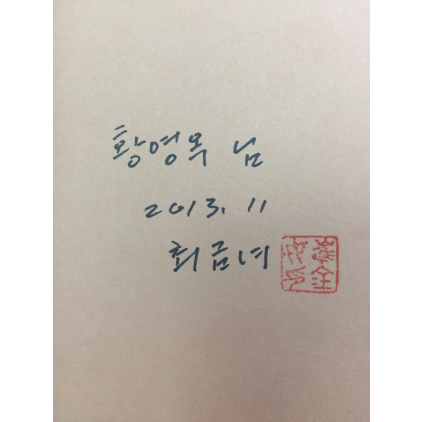 황영옥 님
2013. 11
최금녀